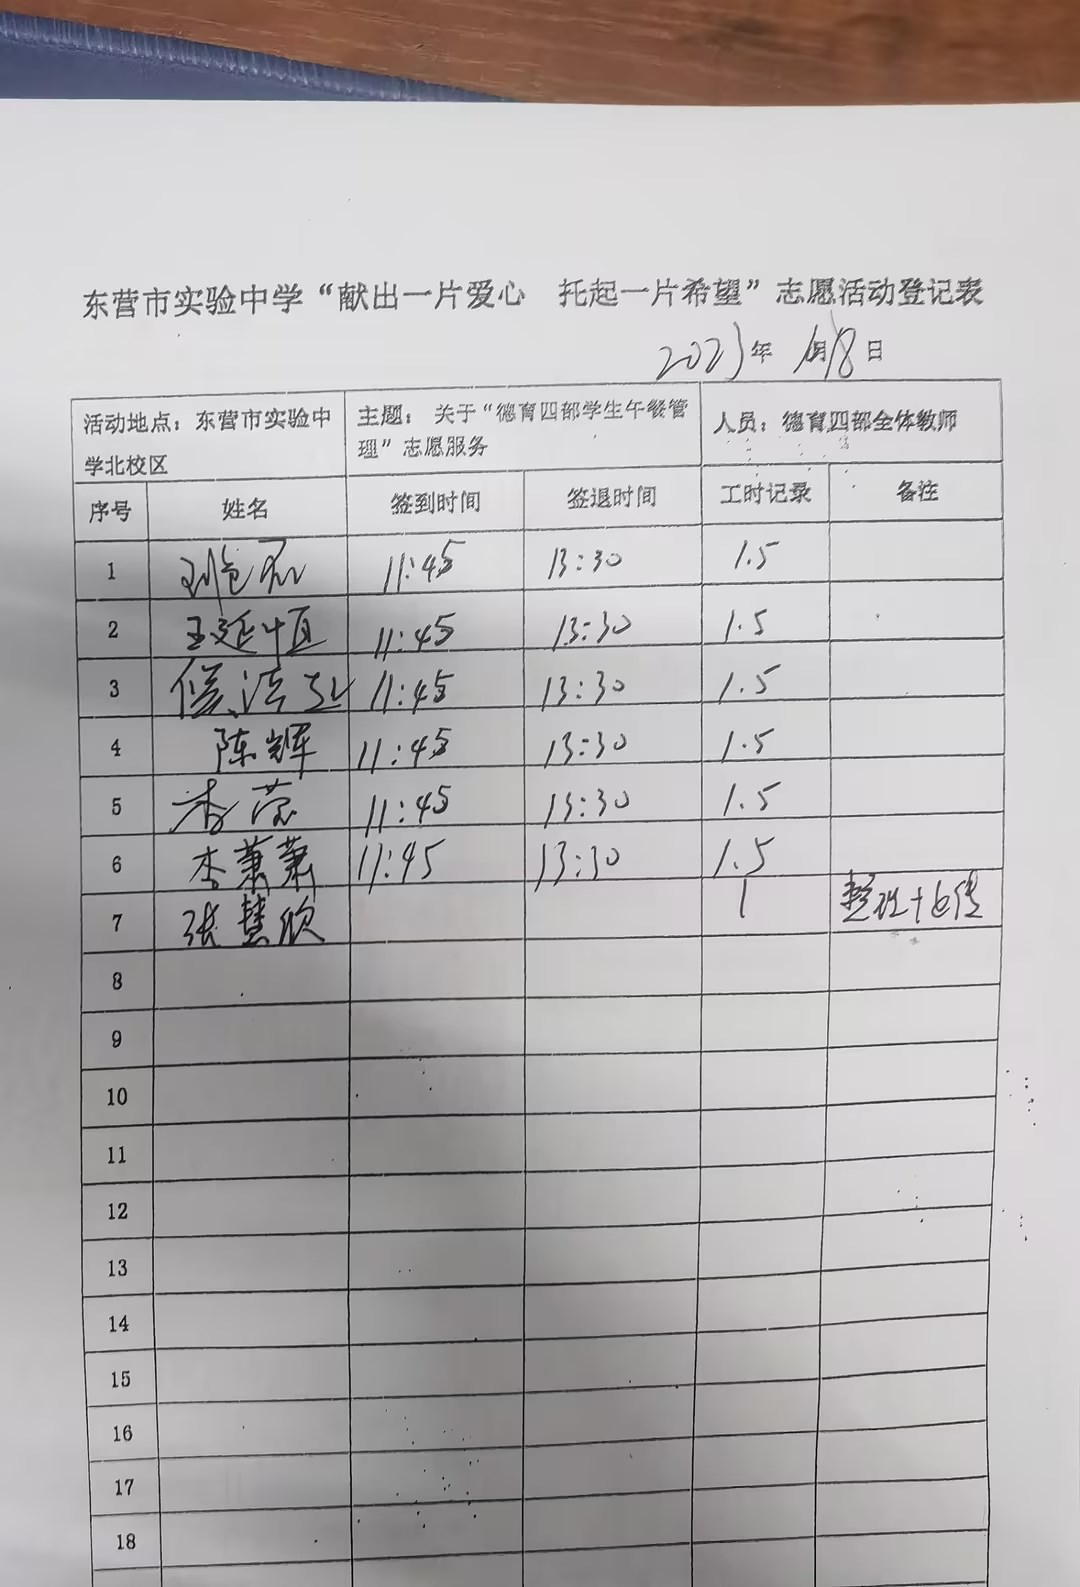 东营市实验中学“献出一片爱心 托起一片希望”志愿活动登记表
2023年 月18日
活动地点：东营市实验中学北校区 主题：关于“德育四部学生午餐管理”志愿服务 人员：德育四部全体教师
序号 姓名 签到时间 签退时间 工时记录 备注
1 11:45 13:30 1.5
2 王延恒 11:45 13:30 1.5
3 11:45 13:30 1.5
4 陈辉 11:45 13:30 1.5
5 李 11:45 13:30 1.5
6 李萧萧 11:45 13:30 1.5
7 张慧欣 1 整理+上传
8
9
10
11
12
13
14
15
16
17
18